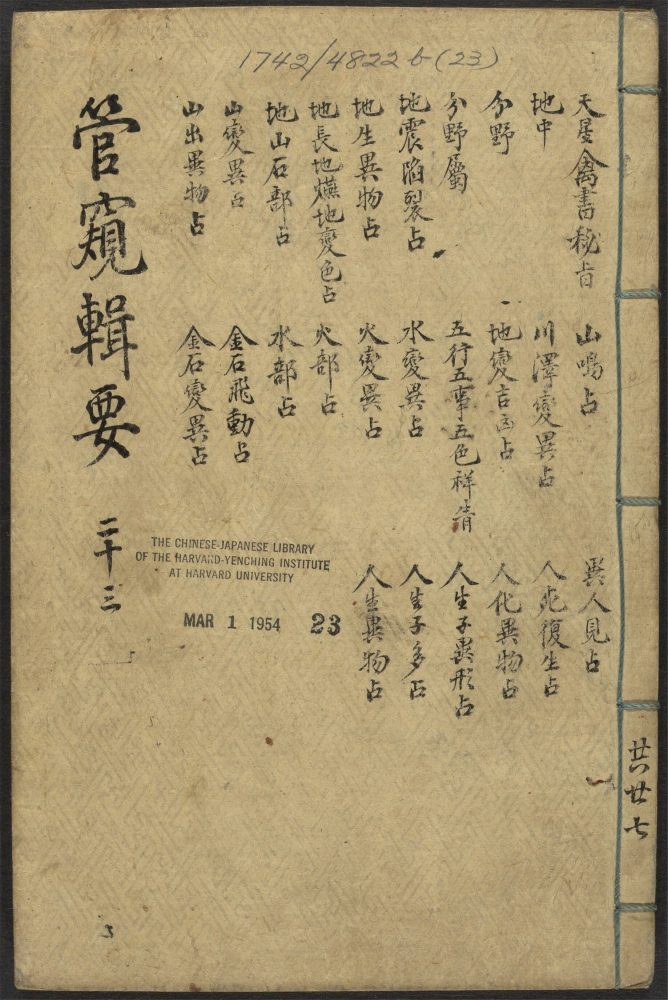 1742/4822 b (23)
天星禽書秘旨
地中
分野
分野屬
地震陷裂占
地生異物占
地長地燃地變色占
地山石部占
山變異占
山出異物占
山鳴占
川澤變異占
地變吉凶占
五行五事五色祥眚
水變異占
火變異占
火部占
水部占
金石飛動占
金石變異占
異人見占
人死復生占
人化異物占
人生子異形占
人生子多占
人生異物占
管窺輯要 二十三
THE CHINESE-JAPANESE LIBRARY
OF THE HARVARD-YENCHING INSTITUTE
AT HARVARD UNIVERSITY
MAR 1 1954
23
共廿七